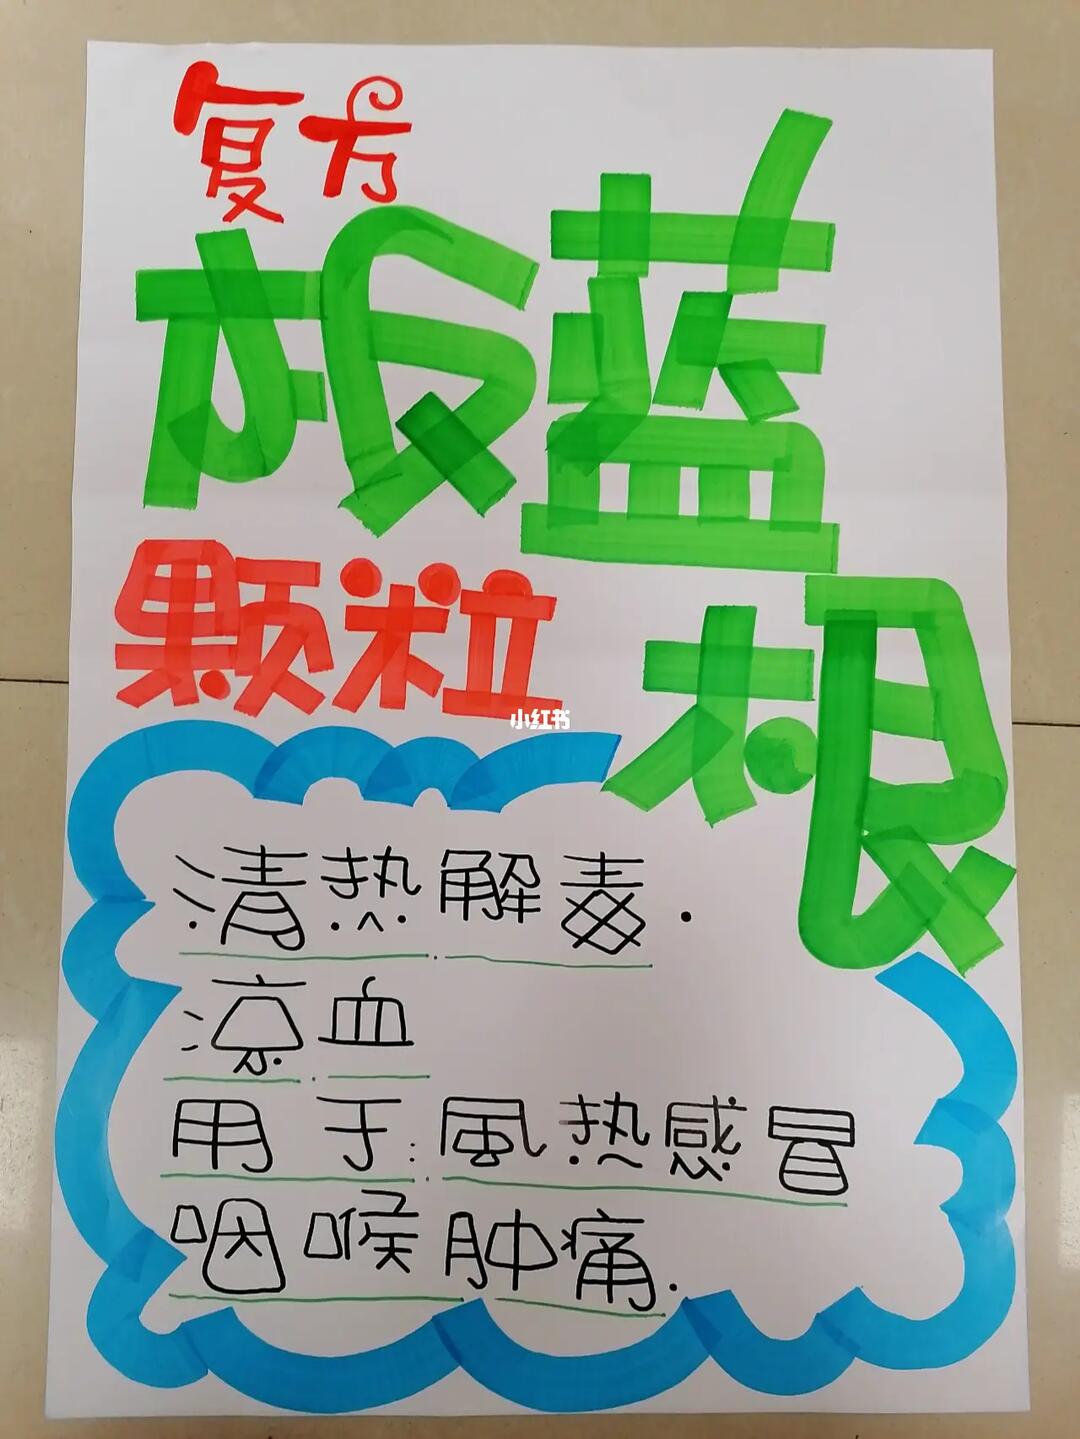 复方
板蓝根
颗粒
小红书
清热解毒.
凉血
用于:風热感冒
咽喉肿痛.